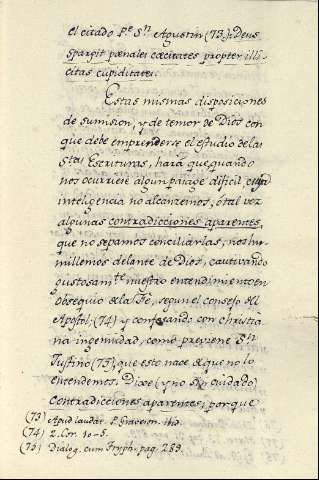 el citado P.e S.n Agustin (73): Deus
spargit pænales cæcitates propter illi-
citas cupiditates.
Estas mismas disposiciones
de sumision, y de temor de Dios con
que debe emprenderse el estudio de las
S.tas Escrituras, hará que quando
nos ocurriere algun pasage dificil, cuya
inteligencia no alcanzemos, ó tal vez
algunas contradicciones aparentes,
que no sepamos conciliarlas, nos hu-
millemos delante de Dios, cautivando
gustosam.te nuestro entendimiento en
obsequio de la Fé, segun el consejo del
Apostol; (74) y confesando con christia-
na ingenuidad, como previene S.n
Justino (75), que esto nace de que no lo
entendemos. Dixe (y no sin cuidado)
contradicciones aparentes; porque
(73) Apud laudat. P. Graveson. ibid.
(74) 2. Cor. 10-5.
(75) Dialog. cum Tryph. pag. 289.